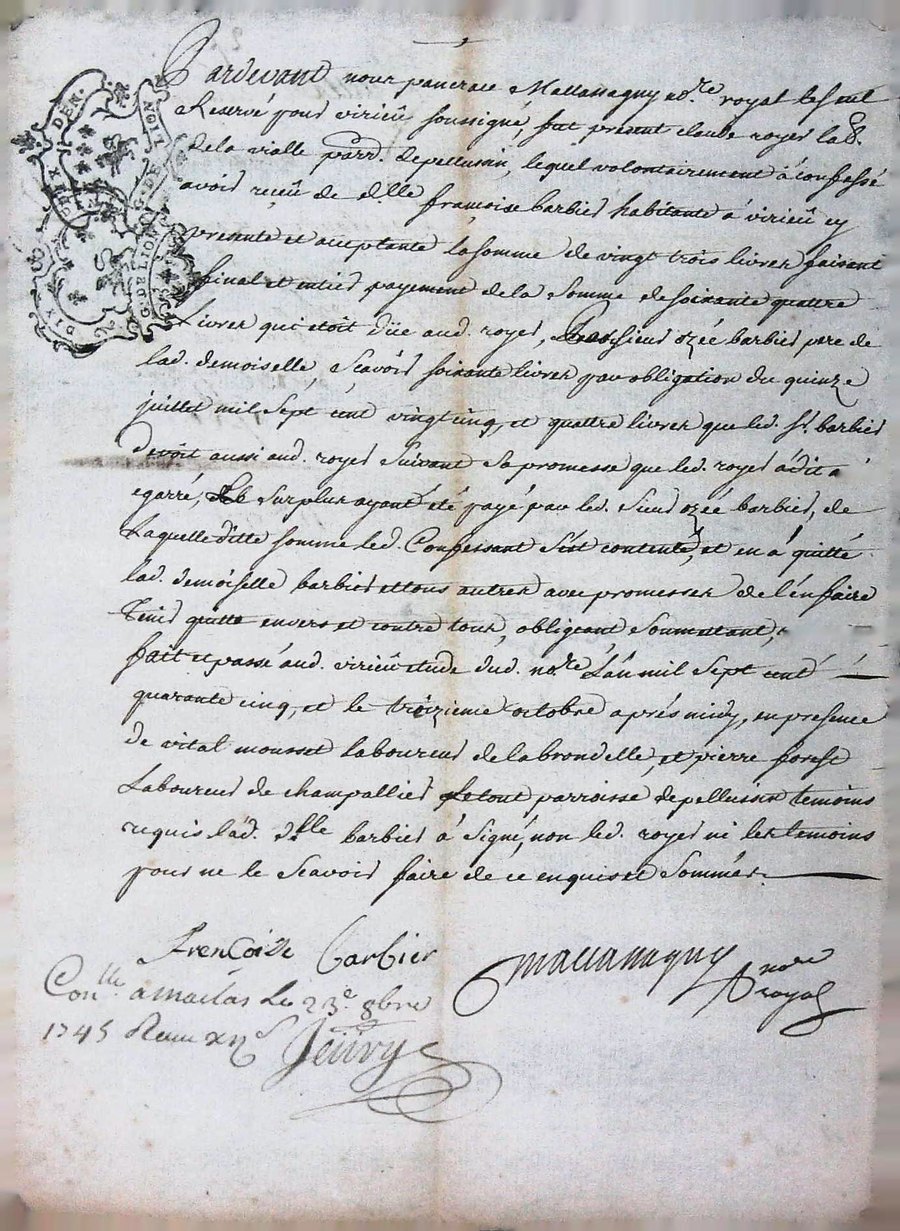 Pardevant nous pancrace Mallassagny no.re royal
Reservé pour virieü soussigné, fut présent claude royer lab.r
de la vialle parr. de pellussin, lequel volontairement à confessé
avoir reçeü de d.lle françoise barbier habitante à virieü cy
presente et acceptante la somme de vingt trois livres faisant
final et entier payement de la somme de soixante quattre
Livres qui etoit düe aud. royer, sieur ozée barbier pere de
lad. demoiselle, Scavoir soixante livres par obligation du quinze
juillet mil Sept cent vingt cinq, et quattre livres que led. Sr. barbier
devoit aussi aud. royer suivant sa promesse que led. royer à dit a
egarré, Le surplus ayant été payé par led. Sieur ozée barbier, de
Laquelle ditte somme led. Confessant s'est contenté, et en à quitté
lad. demoiselle barbier et tous autres avec promesses de l'en faire
Tenir quitte envers et contre tous, obligeant Soumettant,
fait et passé aud. virieü etude dud. no.re L'an mil Sept cent
quarante cinq, et le troizieme octobre après midy, en presence
de vital mousset laboureur de la brondelle, et pierre forest
Laboureur de champallier Le tout parroisse de pellussin temoins
requis lad. d.lle barbier à Signé, non led. royer ni les temoins
pour ne le Scavoir faire de ce enquis et Sommés.
frencoise barbier
Mallassagny no.re
royal
Con.lle a maclas Le 23.e 8bre
1745 Reçu
Jeüvy
DEN.
DIX
G. DE LION
G. DE LION